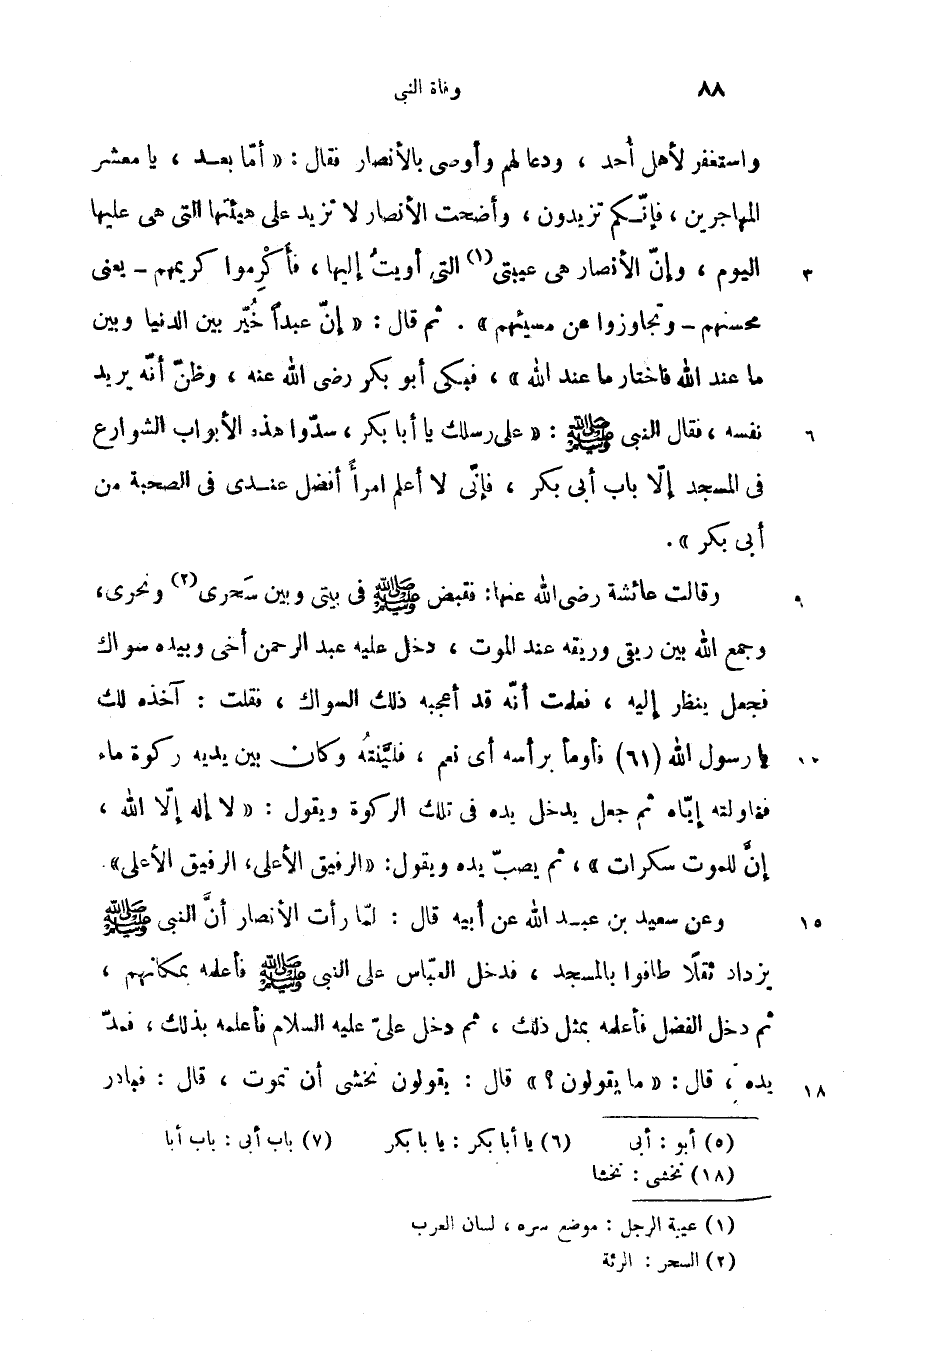 ٨٨ وفاة النبى
واستغفر لأهل أُحد ، ودعا لهم وأوصى بالأنصار فقال : « أمّا بعـد ، يا معشر
المهاجرين ، فإنّـكم تزيدون ، وأضحت الأنصار لا تزيد على هيئتها التى هى عليها
٣ اليوم ، وإنّ الأنصار هى عيبتى(١) التى أويتُ إليها ، فأَكْرِموا كريمهم – يعنى
محسنهم – وتجاوزوا عن مسيئهم » . ثم قال : « إنّ عبداً خُيّر بين الدنيا وبين
ما عند الله فاختار ما عند الله » ، فبكى أبو بكر رضى الله عنه ، وظنّ أنّه يريد
٦ نفسه ، فقال النبى ﷺ : « على رسلك يا أبا بكر ، سدّوا هذه الأبواب الشوارع
فى المسجد إلّا باب أبى بكر ، فإنّى لا أعلم امرأً أفضل عنـدى فى الصحبة من
أبى بكر » .
٩ وقالت عائشة رضى الله عنها: فقبض ﷺ فى بيتى وبين سَحرى(٢) ونحرى،
وجمع الله بين ريقى وريقه عند الموت ، دخل عليه عبد الرحمن أخى وبيده سواك
فجعل ينظر إليه ، فعلمت أنّه قد أعجبه ذلك السواك ، فقلت : آخذه لك
١٠ يا رسول الله (٦١) فأومأ برأسه أى نعم ، فليّنتهُ وكان بين يديه ركوة ماء
فناولته إيّاه ثم جعل يدخل يده فى تلك الركوة ويقول : « لا إله إلّا الله ،
إنَّ للموت سكرات » ، ثم يصبّ يده ويقول: «الرفيق الأعلى، الرفيق الأعلى».
١٥ وعن سعيد بن عبـد الله عن أبيه قال : لمّا رأت الأنصار أنَّ النبى ﷺ
يزداد ثقلًا طافوا بالمسجد ، فدخل العبّاس على النبى ﷺ فأعلمه بمكانهم ،
ثم دخل الفضل فأعلمه بمثل ذلك ، ثم دخل علىّ عليه السلام فأعلمه بذلك ، فمدّ
١٨ يده ، قال : « ما يقولون ؟ » قال : يقولون نخشى أن تموت ، قال : فبادر
(٥) أبو : أبى (٦) يا أبا بكر : يا با بكر (٧) باب أبى : باب أبا
(١٨) نخشى : نخشا
(١) عيبة الرجل : موضع سره ، لسان العرب
(٢) السحر : الرئة